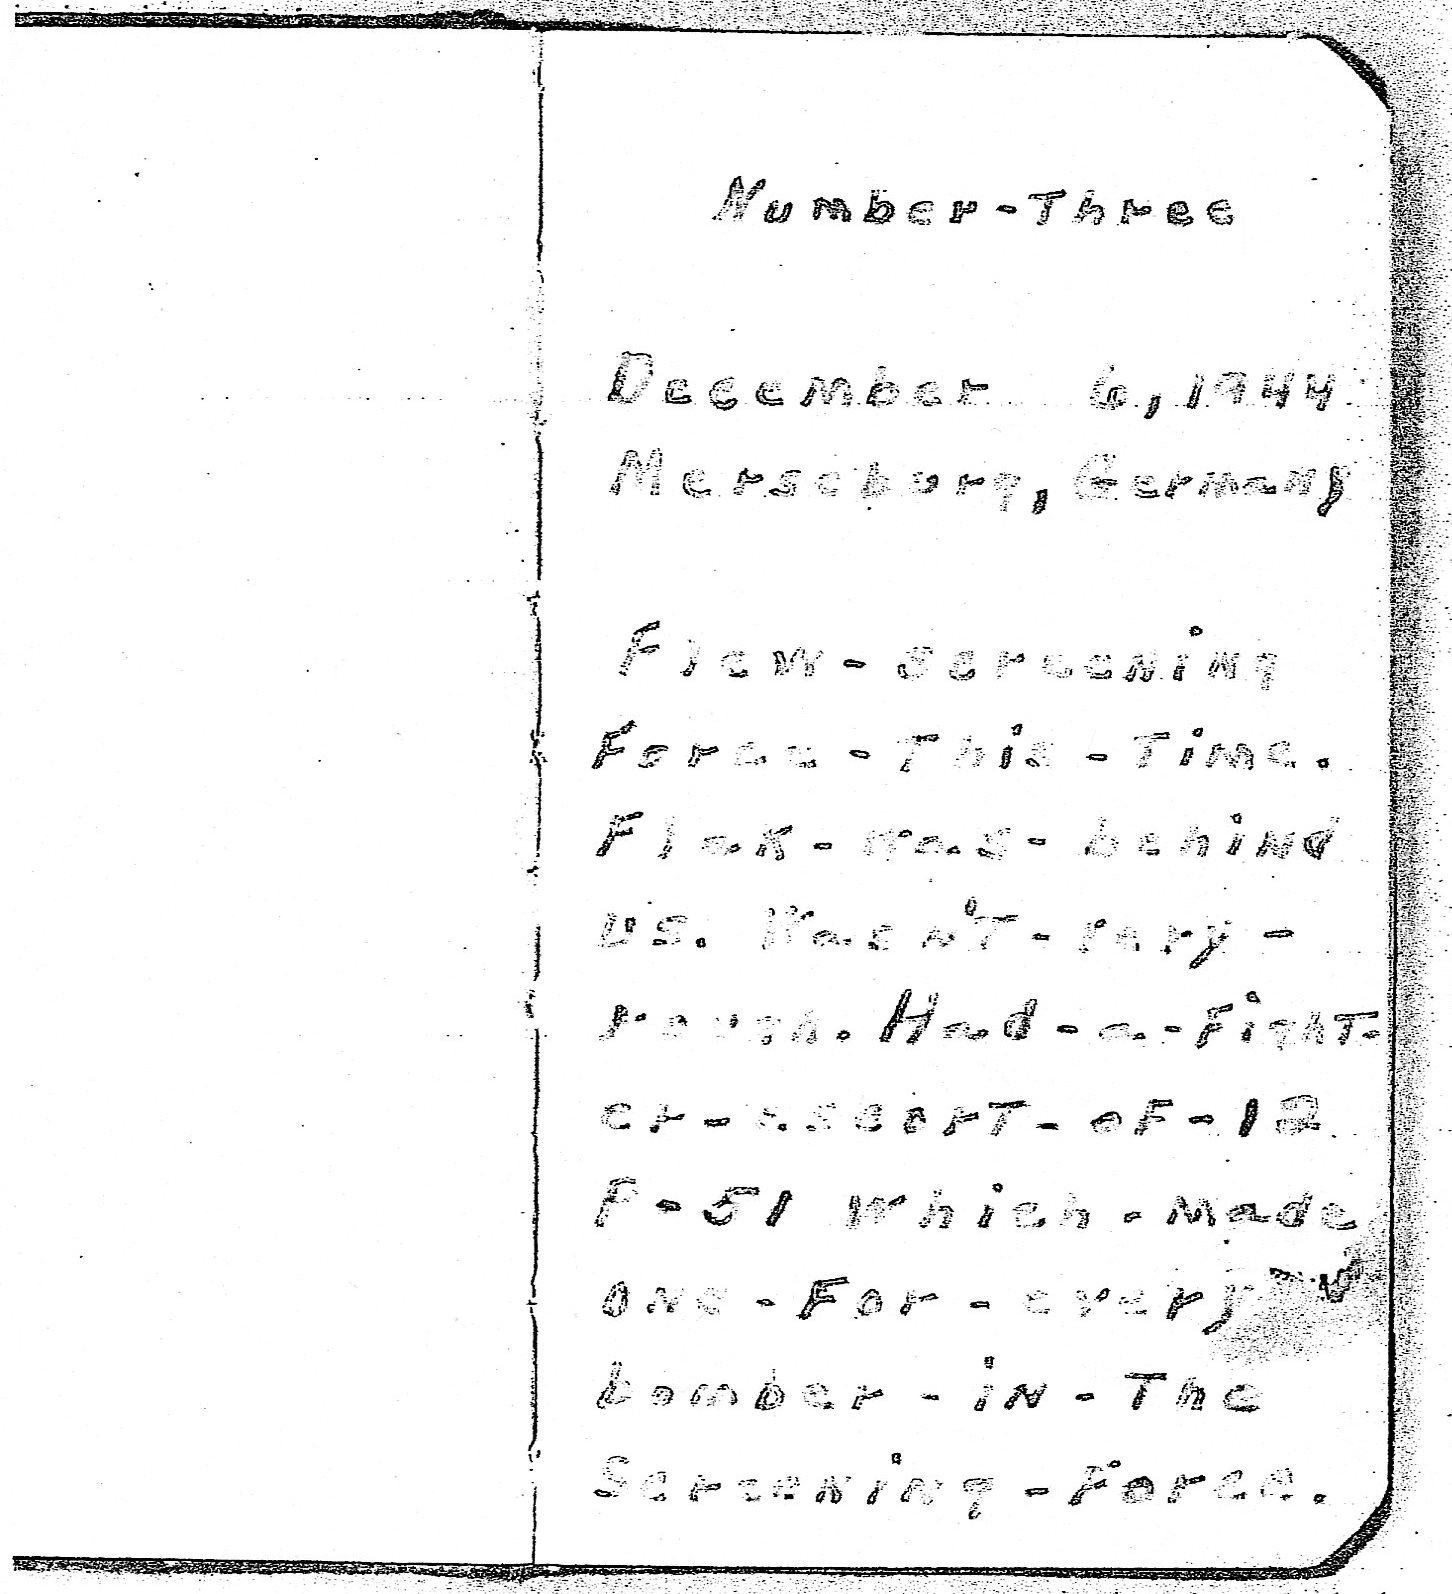 Number-Three
December 6, 1944
Merseburg, Germany
Flew-screening
Force-This-Time.
Flak-was-behind
us. Wasn't-very-
rough. Had-a-Fight-
er-escort-of-12
P-51 which-Made
one-For-every
bomber-in-The
Screening-Force.